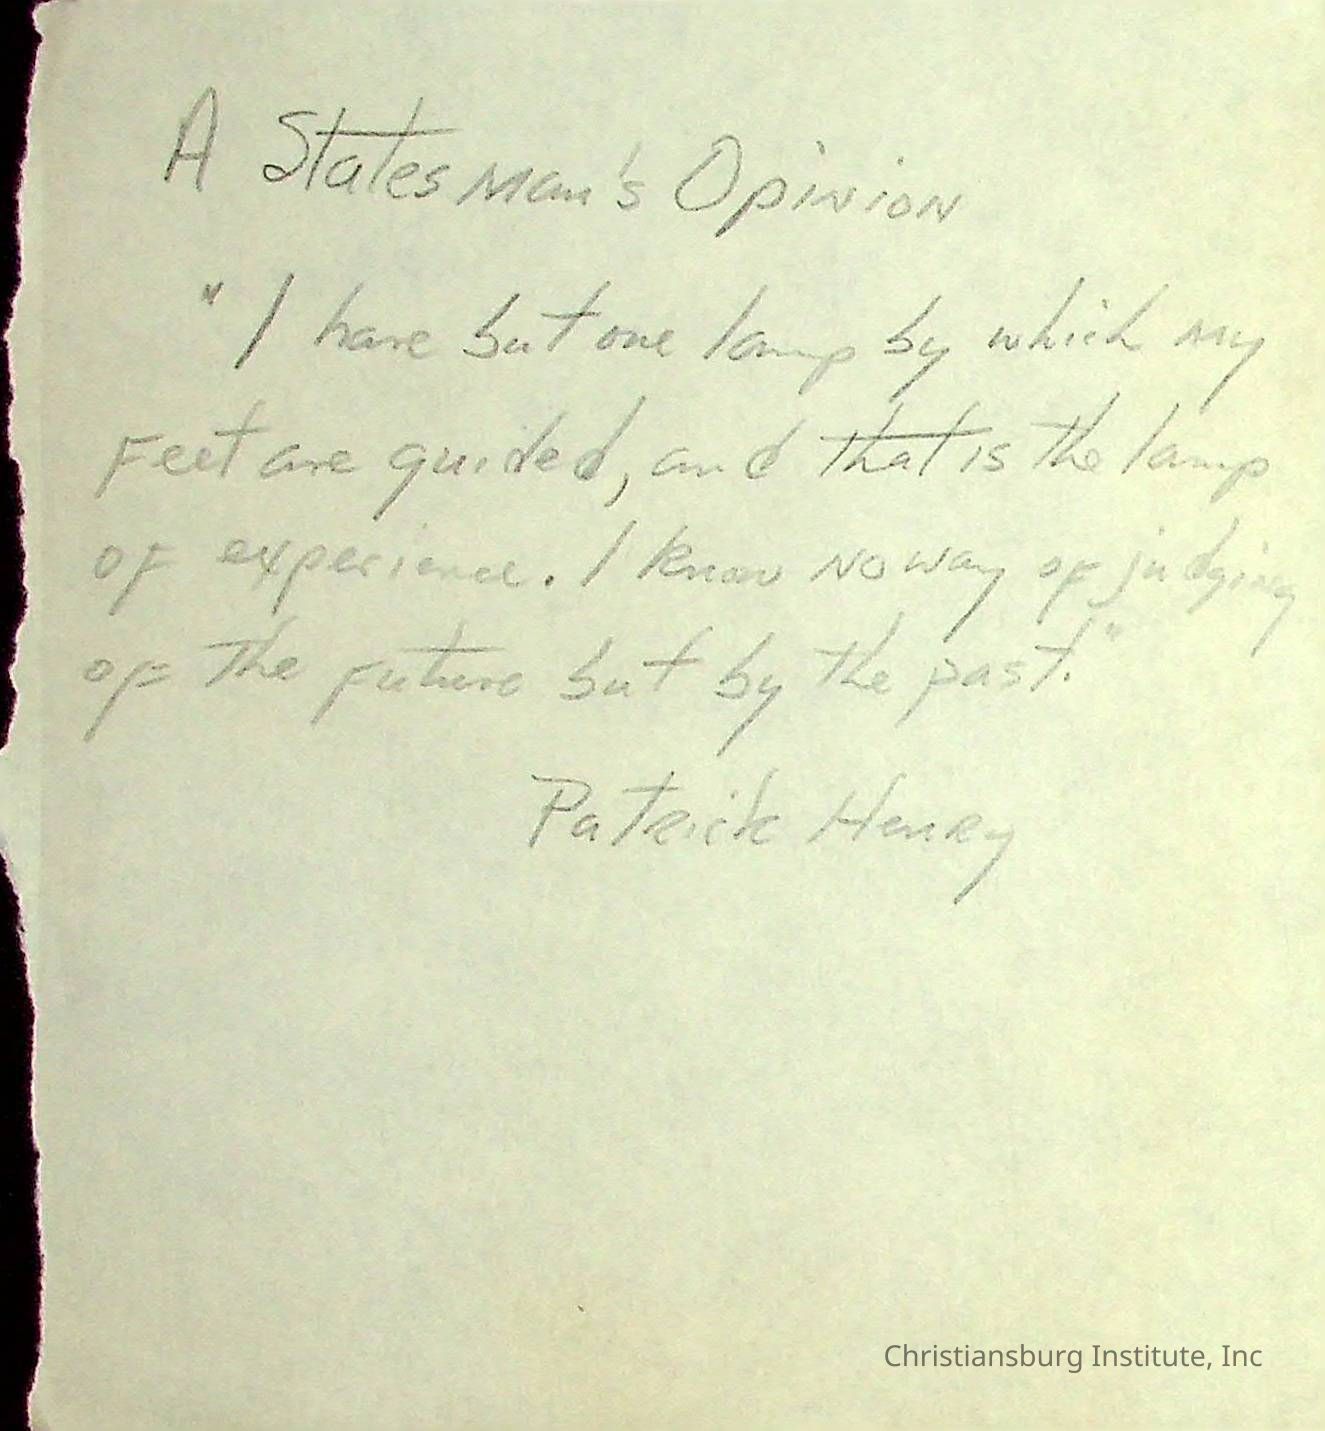 A Statesman's Opinion
"I have but one lamp by which my
Feet are guided, and that is the lamp
of experience. I know no way of judging
of the future but by the past."
Patrick Henry
Christiansburg Institute, Inc